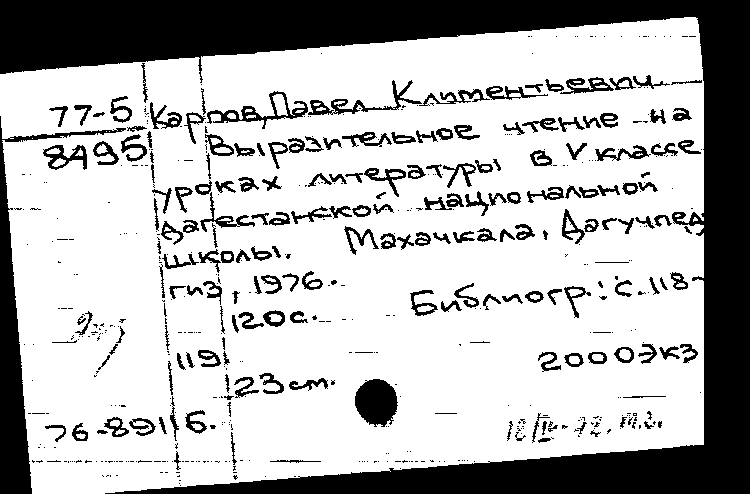 77-5 Карпов, Павел Климентьевич
8495 Выразительное чтение на
уроках литературы в V классе
дагестанской национальной
школы. Махачкала, Дагучпед-
гиз, 1976.
120с. Библиогр.: с. 118-
119.
23см. 2000экз
76-89116.